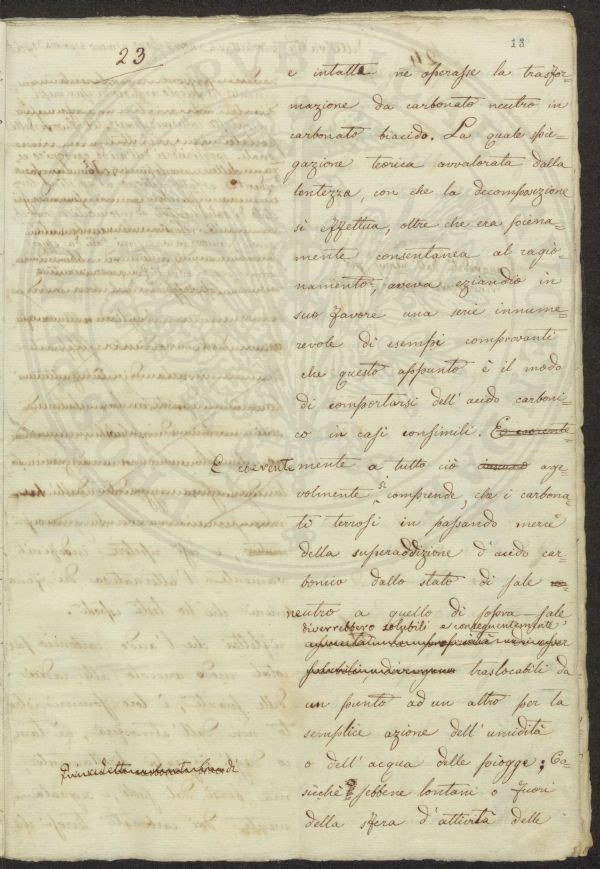 23
13
e intatta ne operasse la trasfor-
mazione da carbonato neutro in
carbonato biacido. La quale spie-
gazione teorica avvalorata dalla
lentezza, con che la decomposizione
si effettua, oltre che era piena-
mente consentanea al ragio-
namento, aveva eziandio in
suo favore una serie innume-
revole di esempi comprovanti
che questo appunto è il modo
di comportarsi dell' acido carboni-
co in casi consimili. E coerente-
E coerentemente a tutto ciò age-
volmente si comprende, che i carbona-
ti terrosi in passando mercè
della superaddizione d' acido car-
bonico dallo stato di sale
neutro a quello di sopra-sale
diverrebbero solubili e conseguentemente
traslocabili da
un punto ad un altro per la
semplice azione dell' umidità
o dell' acqua delle piogge; Co-
sicchè sebbene lontani o fuori
della sfera d' attività delle